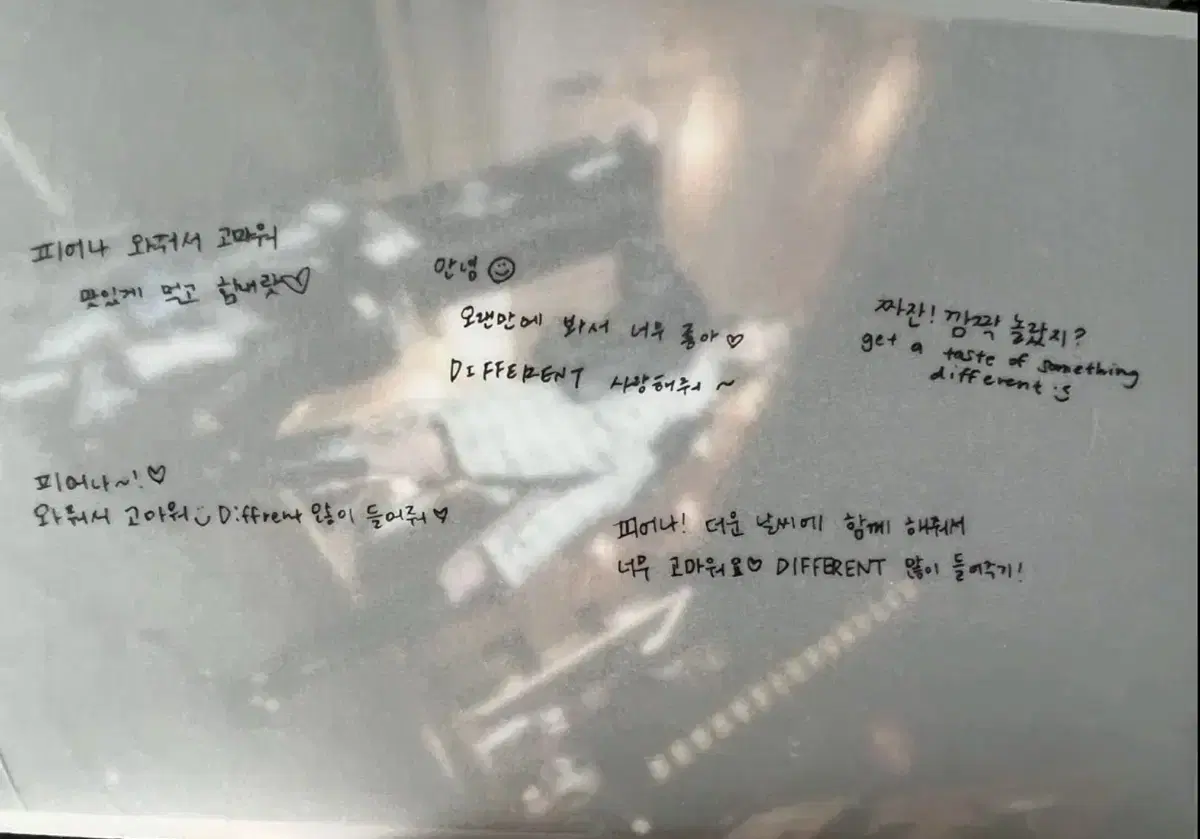 피어나 와줘서 고마워
맛있게 먹고 힘내랏♡
안녕☺
오랜만에 봐서 너무 좋아♡
DIFFERENT 사랑해줘 ~
짜잔! 깜짝 놀랐지?
get a taste of something
different :)
피어나~!♡
와줘서 고마워 :) Diffrent 많이 들어줘♥
피어나! 더운 날씨에 함께 해줘서
너무 고마워요♡ DIFFERENT 많이 들어주기!